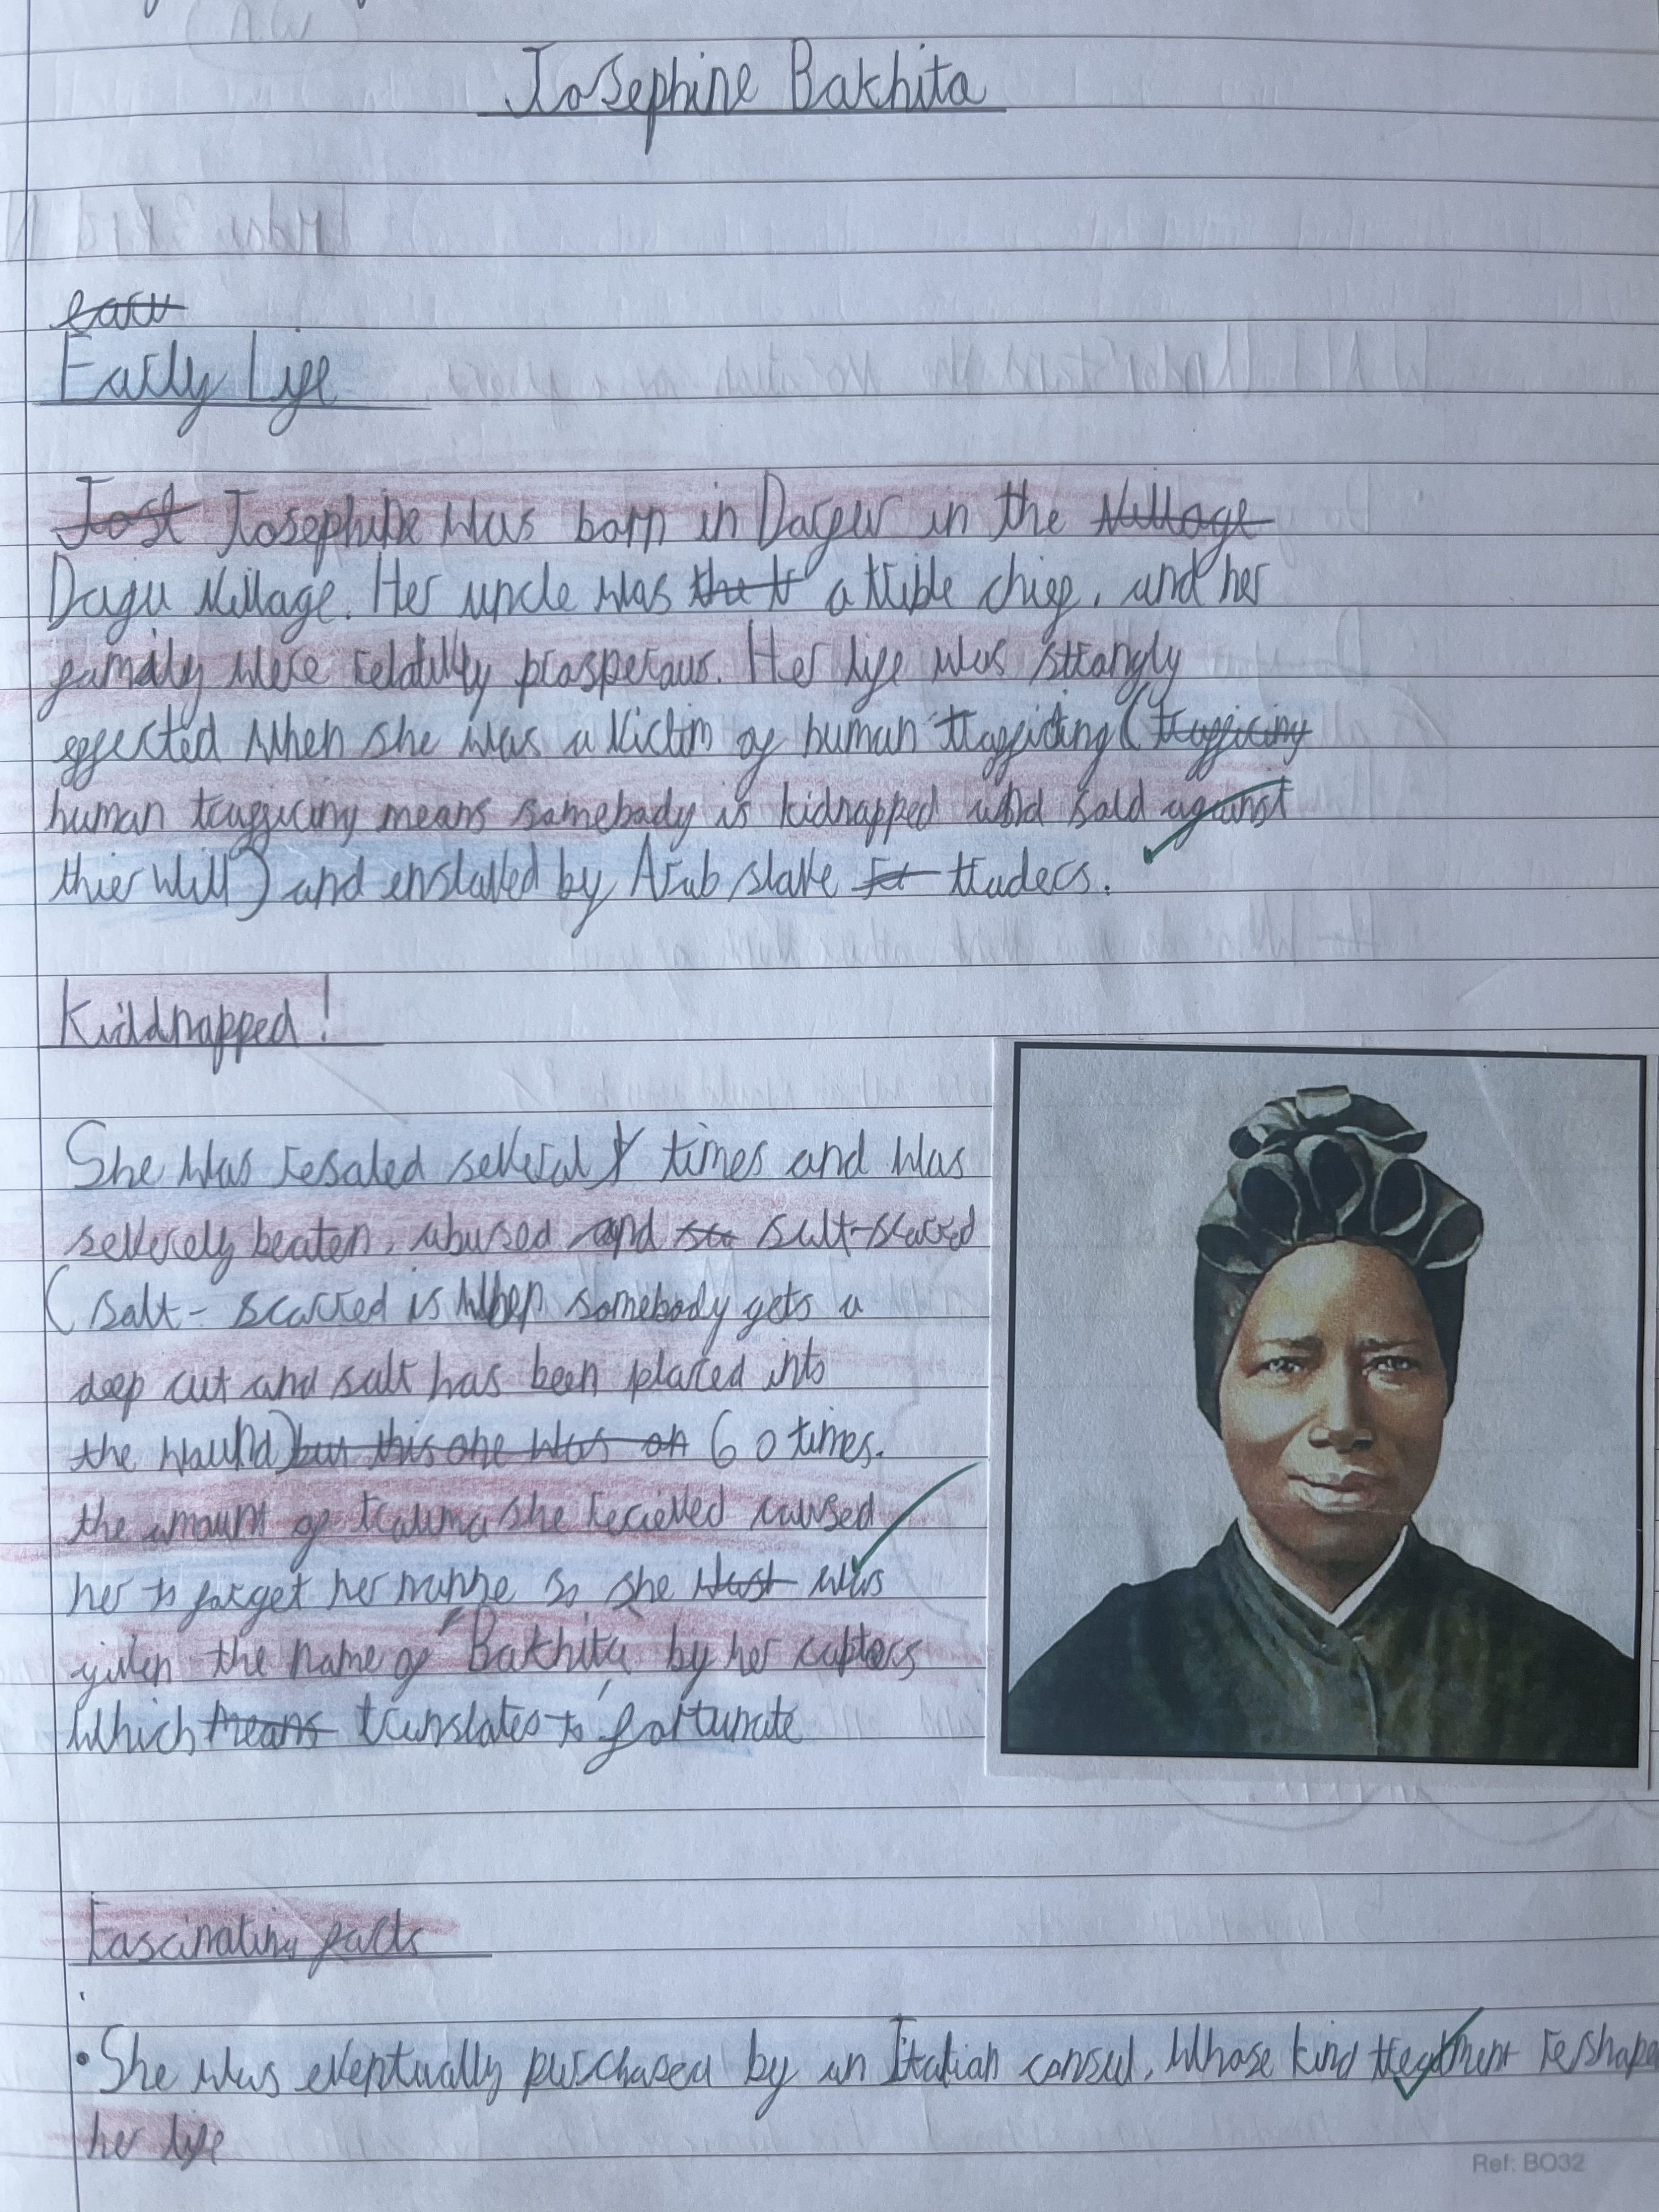 Josephine Bakhita
earl
Early Life
Jost Josephine was born in Darfur in the village
Dagu village. Her uncle was the t a trible chief, and her
family were relativly prosperous. Her life was strangly
effected when she was a victim of human trafficing (trafficing
human trafficing means somebody is kidnapped and sold against
thier will) and enslaved by Arab slave traders.
Kiddnapped!
She was resaled several times and was
severely beaten, abused and sca salt-scarred
(salt-scarred is when somebody gets a
deep cut and salt has been placed into
the wound) but this one was on 60 times.
the amount of trauma she recieved caused
her to forget her name so she was
given the name of "Bakhita, by her captors
which means translates to 'fortunate
Fascinating facts
• She was eventually purchased by an Italian consul, whose kind treatment reshape
her life
Ref: BO32